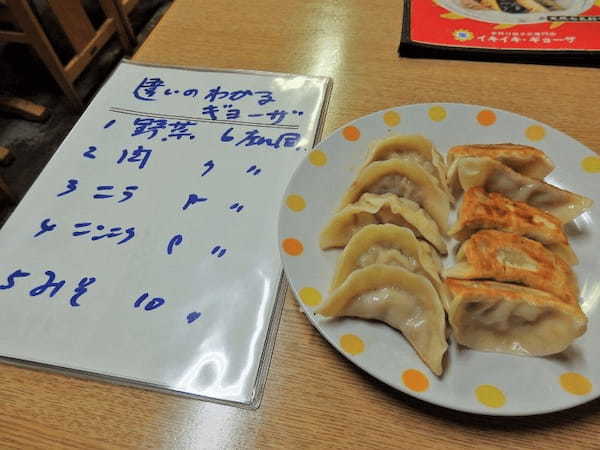 イキイキ・ギョーザ
違いのわかる
ギョーザ
1 野菜 6
2 肉 7 〃
3 ニラ 8 〃
4 ニンニク 9 〃
5 みそ 10 〃